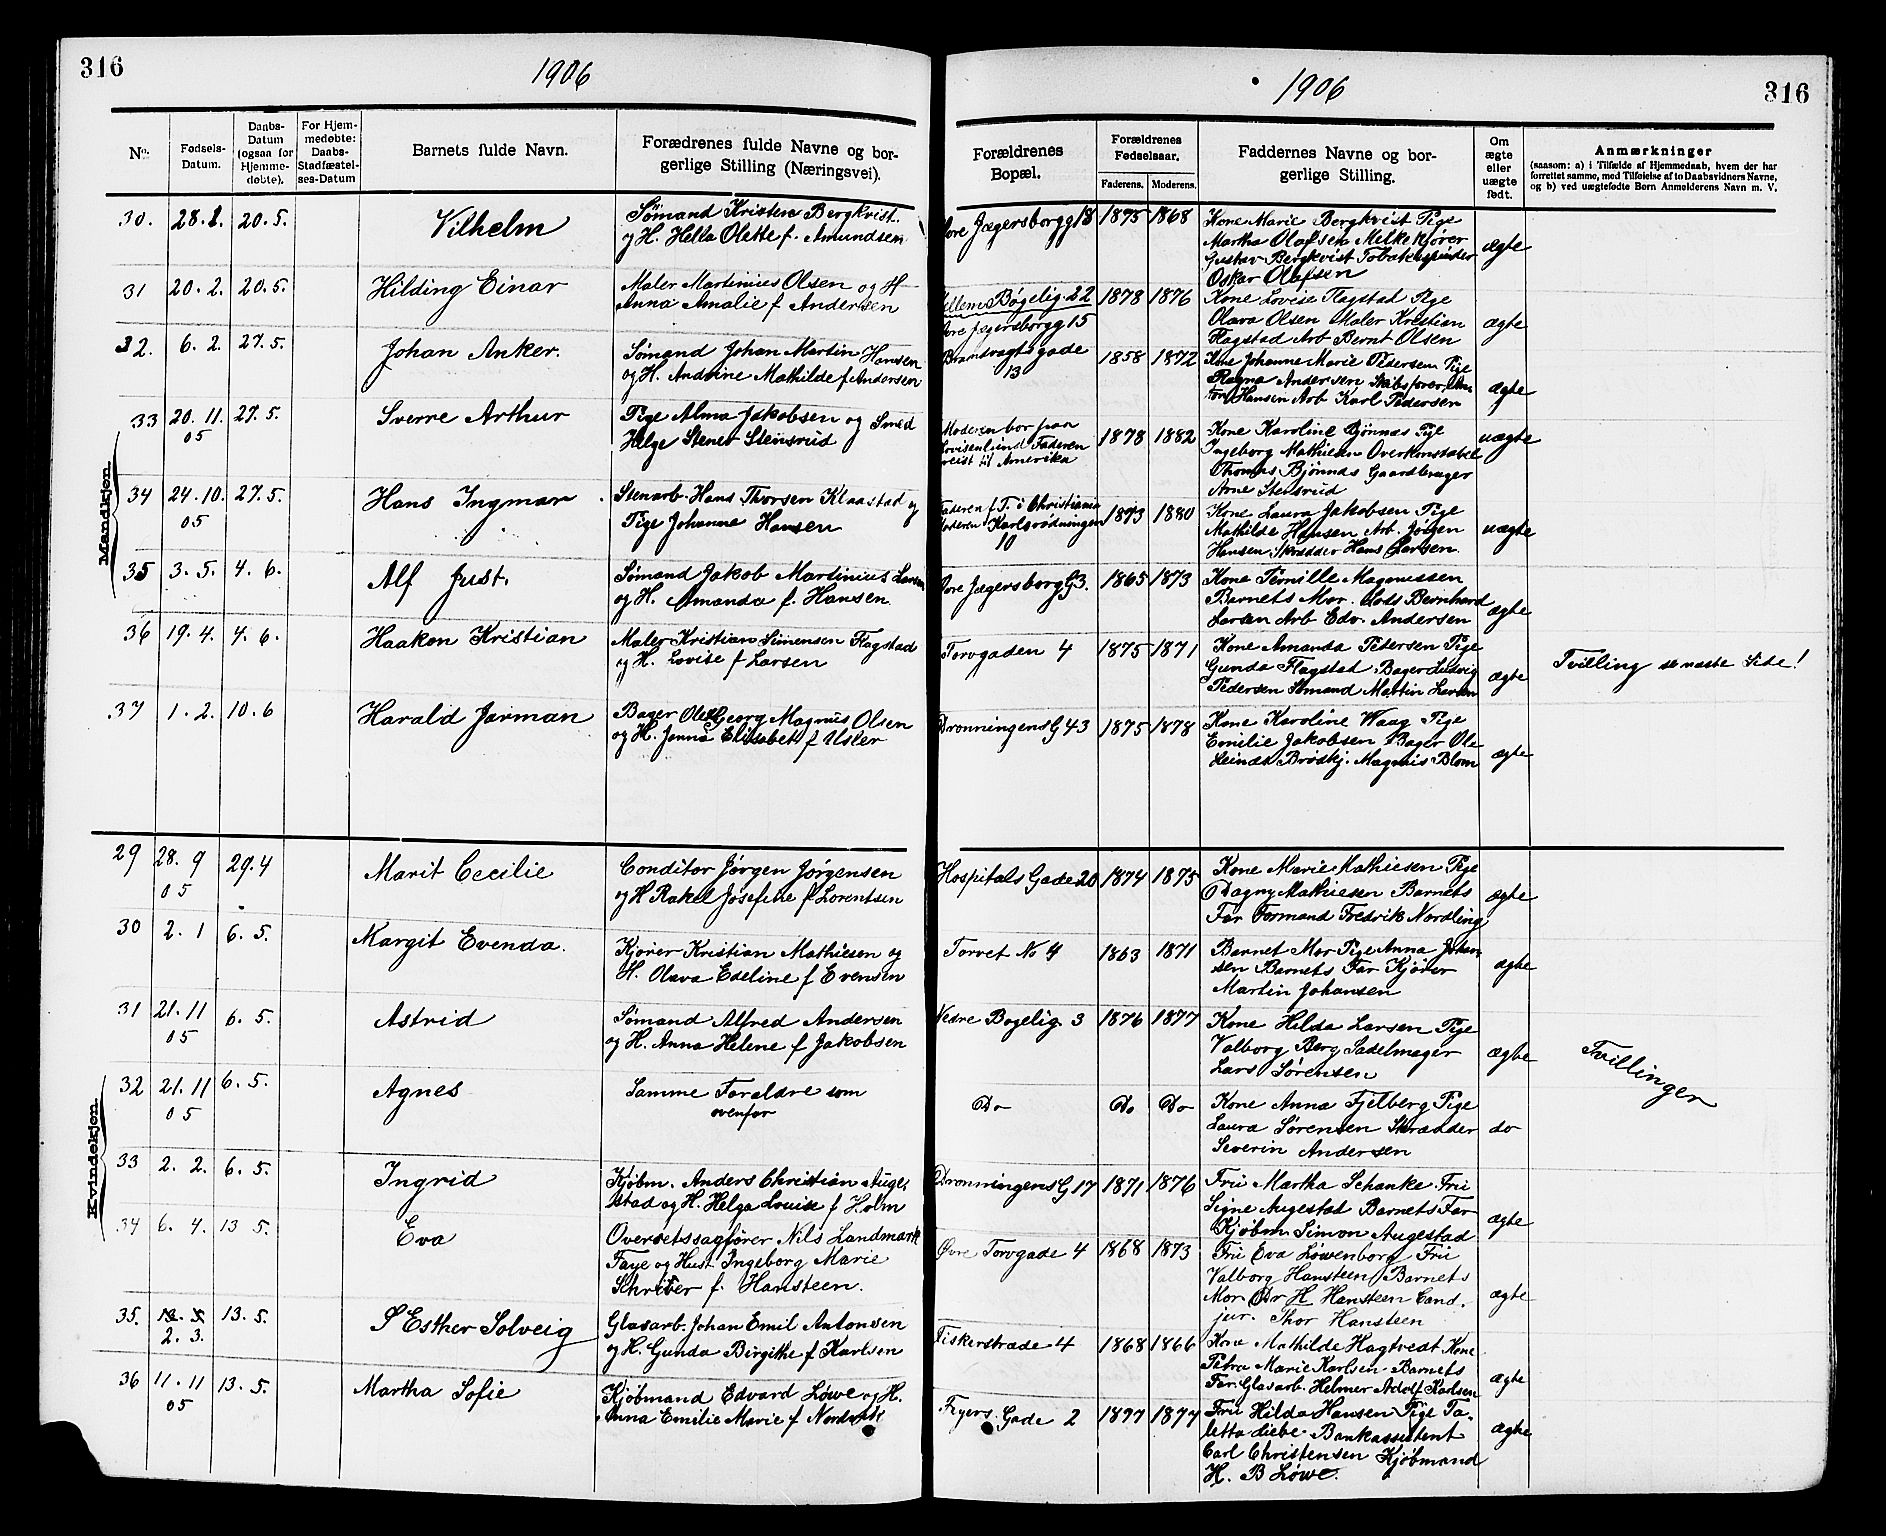 316
1906
No.
Fødsels-
Datum.
Daabs-
Datum
(ogsaa for
Hjemme-
døbte).
For Hjem-
medøbte:
Daabs-
Stadfæstel-
ses-Datum
Barnets fulde Navn.
Forædrenes fulde Navne og bor-
gerlige Stilling (Næringsvei).
Mandkjøn
30. 28.1. 20.5. Vilhelm
Sømand Kristen Bergkvist.
og H. Hella Olette f. Amundsen
31 20.2. 20.5. Hilding Einar
Maler Martinius Olsen og H
Anna Amalie f Andersen
32. 6.2. 27.5. Johan Anker.
Sømand Johan Martin Hansen
og H. Andrine Mathilde f Andersen
33 20.11. 27.5. Sverre Arthur
05
Pige Alma Jakobsen og Smed
Helge Stener Stensrud
34 24.10. 27.5. Hans Ingmar
05
Stenarb. Hans Thorsen Klaastad og
Pige Johanne Hansen
35 3.5. 4.6. Alf Just.
Sømand Jakob Martinius Larsen
og H. Amanda f. Hansen.
36 19.4. 4.6. Haakon Kristian
Maler Kristian Simensen Flagstad
og H. Lovise f Larsen
37 1.2. 10.6 Harald Jarman
Bager Ole Georg Magnus Olsen
og H. Janna Elisabet f Usler
Kvindekjøn
29 28.9 29.4 Marit Cecilie
05
Conditor Jørgen Jørgensen
og H Rakel Josefine f Lorentsen
30 2.1 6.5. Margit Evenda.
Kjører Kristian Mathisen og
H. Olava Edeline f Evensen
31 21.11 6.5. Astrid
05
Sømand Alfred Andersen
og H. Anna Helene f Jakobsen
32 21.11 6.5. Agnes
05
Samme Forældre som
ovenfor
33 2.2. 6.5. Ingrid
Kjøbm. Anders Christian Auge-
stad og H. Helga Louise f Holm
34 6.4. 13 5. Eva
Overretssagfører Nils Landmark
Faye og Hust. Ingeborg Marie
Schriver f. Hansteen.
35. 13.5. Esther Solveig
2.3.
Glasarb. Johan Emil Antonsen
og H. Gunda Birgithe f Karlsen
36 11.11 13.5. Martha Sofie
05
Kjøbmand Edvard Løwe og H.
Anna Emilie Marie f
1906
316
Forældrenes
Bopæl.
Forældrenes
Fødselsaar.
Faderens. Moderens.
Faddernes Navne og bor-
gerlige Stilling.
Om
ægte
eller
uægte
født.
Anmærkninger
(saasom: a) i Tilfælde af Hjemmedaab, hvem der har
forrettet samme, med Tilføielse af to Daabsvidners Navne,
og b) ved uægtefødte Børn Anmelderens Navn m. V.
Jægersborgg 18 1875 1868
Kone Marie Bergkvist Pige
Martha Olafsen Melkekjører
Gustav Bergkvist Tobakspinder
Oskar Olafsen
ægte
Bøgelig. 22 1878 1876
Kone Lovise Flagstad Pige
Olava Olsen Maler Kristian
Flagstad Arb Bernt Olsen
ægte
Jægersborgg 15
Brandvagtsgade 1858 1872
13
Kone Johanne Marie Pedersen Pige
Ragna Andersen Skibsfører An-
ton Hansen Arb Karl Pedersen
ægte
Moderen bor paa
Lovisenlund Faderen 1878 1882
reist til Amerika
Kone Karoline Bjønnæs Pige
Ingeborg Mathisen Overkonstabel
Thomas Bjønnæs Gaardbruger
Arne Stensrud
uægte
Faderen f T. i Christiania
Moderen Karlsrødningen 1873 1880
10
Kone Laura Jakobsen Pige
Mathilde Hansen Arb. Jørgen
Hansen Skrædder Hans Larsen.
uægte
Jægersborg G 3. 1865 1873
Kone Pernille Magnussen
Barnets Mor. Lods Bernhard
Larsen Arb Edv. Andersen
ægte
Torvgaden 4 1875 1871
Kone Amanda Pedersen Pige
Gunda Flagstad Bager Ludvig
Pedersen Sømand Martin Larsen
ægte
Tvilling se næste Side!
Dronningens G 43 1875 1878
Kone Karoline Waag Pige
Emilie Jakobsen Bager Ole
Brødkj. Magnus Blom
ægte
Hospitals Gade 20 1874 1875
Kone Marie Mathiesen Pige
Dagny Mathiesen Barnets
Far Formand Fredrik Nordling
ægte
Torvet No 4 1863 1871
Barnet Mor Pige Anna Johan-
sen Barnets Far Kjører
Martin Johansen
ægte
Nedre Bøgelig. 3 1876 1877
Kone Hilda Larsen Pige
Valborg Berg Sadelmager
Lars Sørensen
ægte
Tvillinger
Do Do Do
Kone Anna Fjelberg Pige
Laura Sørensen Skrædder
Severin Andersen
do
Dronningens G 17 1871 1876
Fru Martha Schanke Fru
Signe Augestad Barnets Far
Kjøbm Simon Augestad
ægte
Øvre Torvgade 4 1868 1873
Fru Eva Løwenborg Fru
Valborg Hansteen Barnets
Mor Dr H Hansteen Cand.
jur. Thor Hansteen
ægte
Fiskerstræde 4 1868 1866
Kone Mathilde Hagtvedt Kone
Petra Marie Karlsen Barnets
Far Glasarb. Helmer Adolf Karlsen
ægte
Fryers Gade 2 1877 1874
Fru Hilda Hansen Pige Ta-
letta diebe Bankassistent
Carl Christensen Kjøbmand
H. B Løwe.
ægte